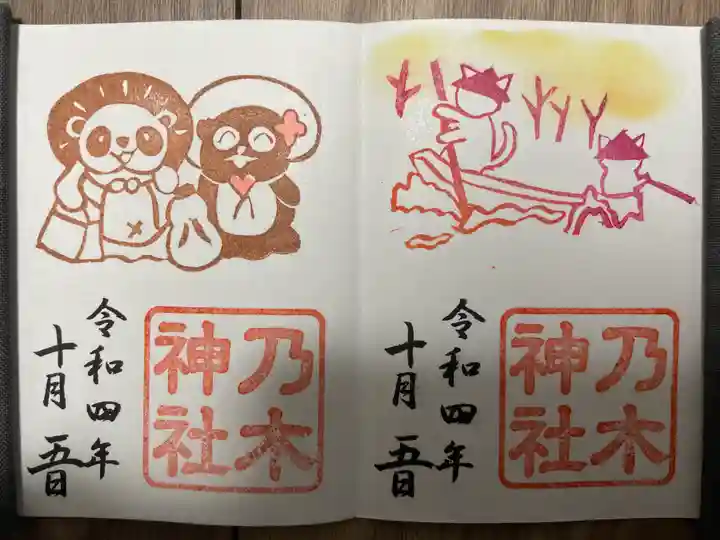 乃木
神社
令和四年
十月五日
乃木
神社
令和四年
十月五日